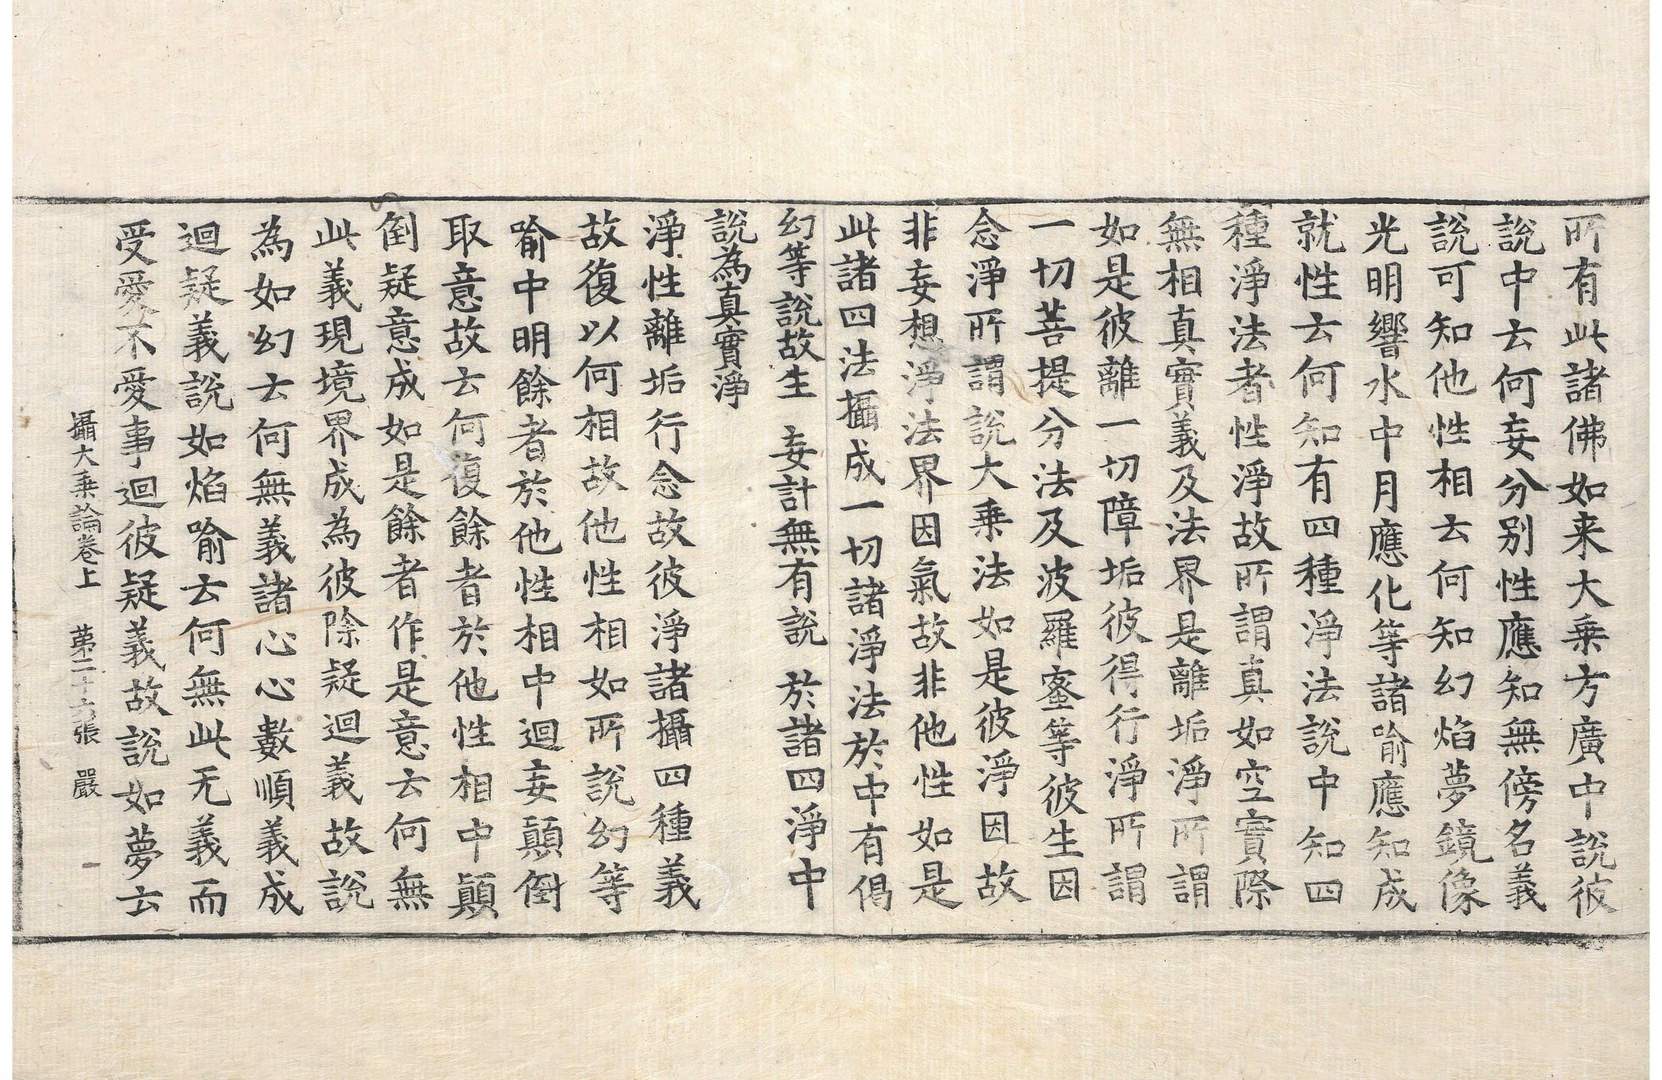 所有此諸佛如来大乗方廣中說彼
說中云何妄分別性應知無傍名義
說可知他性相云何知幻焰夢鏡像
光明響水中月應化等諸喻應知成
就性云何知有四種淨法說中知四
種淨法者性淨故所謂真如空實際
無相真實義及法界是離垢淨所謂
如是彼離一切障垢彼得行淨所謂
一切菩提分法及波羅蜜等彼生因
念淨所謂說大乗法如是彼淨因故
非妄想淨法界因氣故非他性如是
此諸四法攝成一切諸淨法於中有偈
幻等說故生　妄計無有說　於諸四淨中
說為真實淨
淨性離垢行念故彼淨諸攝四種義
故復以何相故他性相如所說幻等
喻中明餘者於他性相中迴妄顛倒
取意故云何復餘者於他性相中顛
倒疑意成如是餘者作是意云何無
此義現境界成為彼除疑迴義故說
為如幻云何無義諸心心數順義成
迴疑義說如焰喻云何無此无義而
受愛不愛事迴彼疑義故說如夢云
攝大乗論卷上　第二十六張　嚴